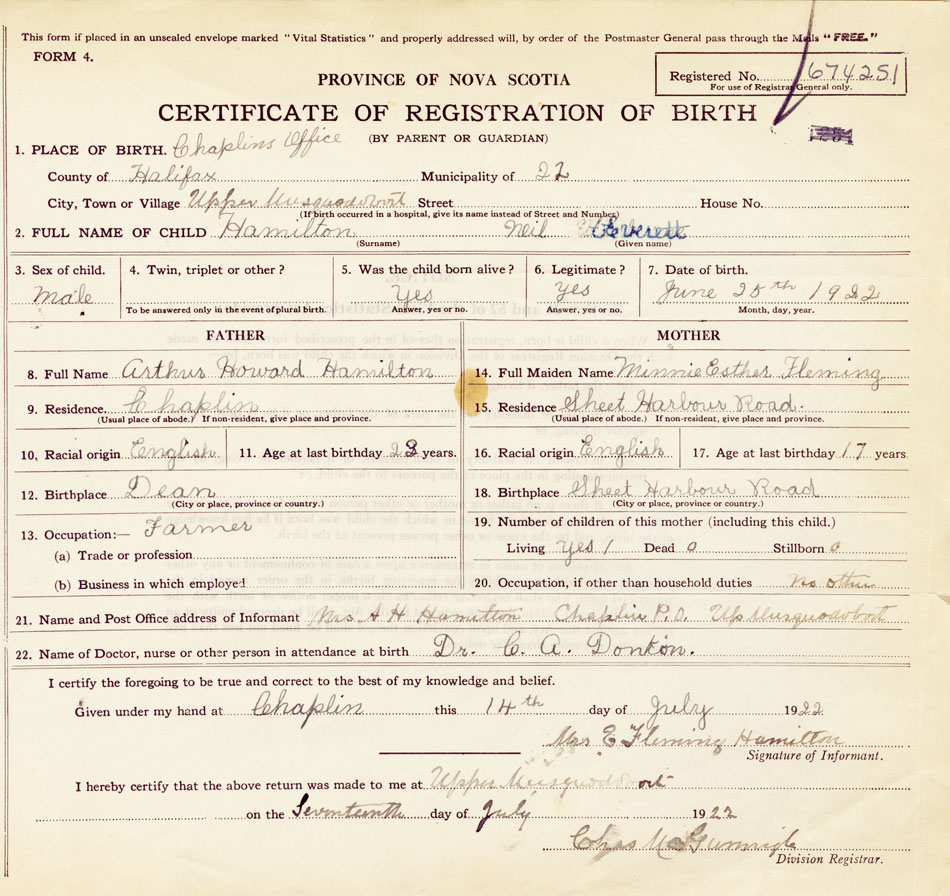 This form if placed in an unsealed envelope marked "Vital Statistics" and properly addressed will, by order of the Postmaster General pass through the Mails "FREE."
FORM 4.
Registered No. 674251
For use of Registrar General only.
PROVINCE OF NOVA SCOTIA
CERTIFICATE OF REGISTRATION OF BIRTH
(BY PARENT OR GUARDIAN)
1. PLACE OF BIRTH. Chaplins Office
County of Halifax Municipality of 22
City, Town or Village Upper Musquodoboit Street House No.
(If birth occurred in a hospital, give its name instead of Street and Number)
2. FULL NAME OF CHILD Hamilton Neil Everett
(Surname) (Given name)
3. Sex of child. 4. Twin, triplet or other? 5. Was the child born alive? 6. Legitimate? 7. Date of birth.
Male Yes Yes June 25th 1922
To be answered only in the event of plural birth. Answer, yes or no. Answer, yes or no. Month, day, year.
FATHER MOTHER
8. Full Name Arthur Howard Hamilton 14. Full Maiden Name Minnie Esther Fleming
9. Residence. Chaplin 15. Residence Sheet Harbour Road.
(Usual place of abode.) If non-resident, give place and province. (Usual place of abode.) If non-resident, give place and province.
10, Racial origin English 11. Age at last birthday 23 years. 16. Racial origin English 17. Age at last birthday 17 years
12. Birthplace Dean 18. Birthplace Sheet Harbour Road
(City or place, province or country.) (City or place, province or country.)
13. Occupation:— Farmer 19. Number of children of this mother (including this child.)
(a) Trade or profession Living yes 1 Dead 0 Stillborn 0
(b) Business in which employed 20. Occupation, if other than household duties no other
21. Name and Post Office address of Informant Mrs A H Hamilton Chaplin P.O. Up Musquodoboit
22. Name of Doctor, nurse or other person in attendance at birth Dr. C. A. Donkin.
I certify the foregoing to be true and correct to the best of my knowledge and belief.
Given under my hand at Chaplin this 14th day of July 1922
Mrs E Fleming Hamilton
Signature of Informant.
I hereby certify that the above return was made to me at Upper Musquodoboit
on the Seventeenth day of July 1922
Chas
Division Registrar.